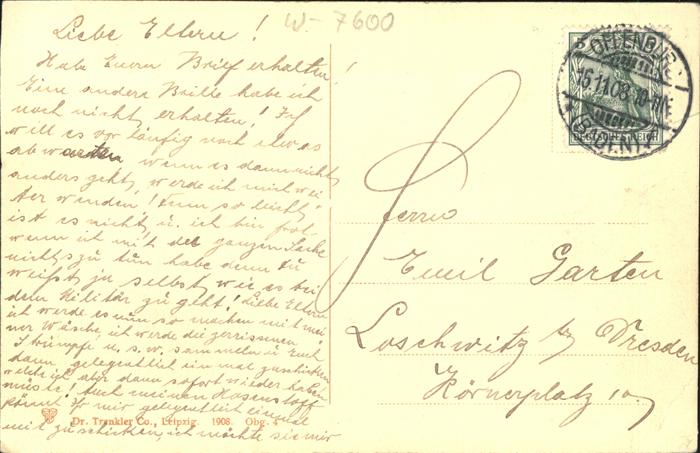 W-7600
Liebe Eltern!
Habe Euern Brief erhalten!
Eine andere Brille habe ich
noch nicht erhalten! Ich
will es vorläufig noch etwas
abwarten wenn es dann nicht
anders geht, werde ich mich wei
ter wenden! Denn so leicht
ist es nicht, u. ich bin froh
wenn ich mit der ganzen Sache
nichts zu tun habe denn Du
weißt ja selbst wie es bei
dem Militär zu geht! Liebe Eltern
ich werde es nun so machen mit mei
ner Wäsche, ich werde die zerrissenen
Strümpfe u. s. w. sammeln u. Euch
dann gelegentlich ein mal zuschicken
welche ich aber dann sofort wieder haben
müsste! Auch meinen Hosenstoff
könnt Ihr mir gelegentlich einmal
mit zuschicken, ich möchte sie mir
Dr. Trenkler Co., Leipzig. 1908. Obg. 4
5
OFFENBURG
16.11.08. 10-11V.
(BADEN) 1
DEUTSCHES REICH
Herrn
Emil Garten
Loschwitz b/ Dresden
Körnerplatz 10